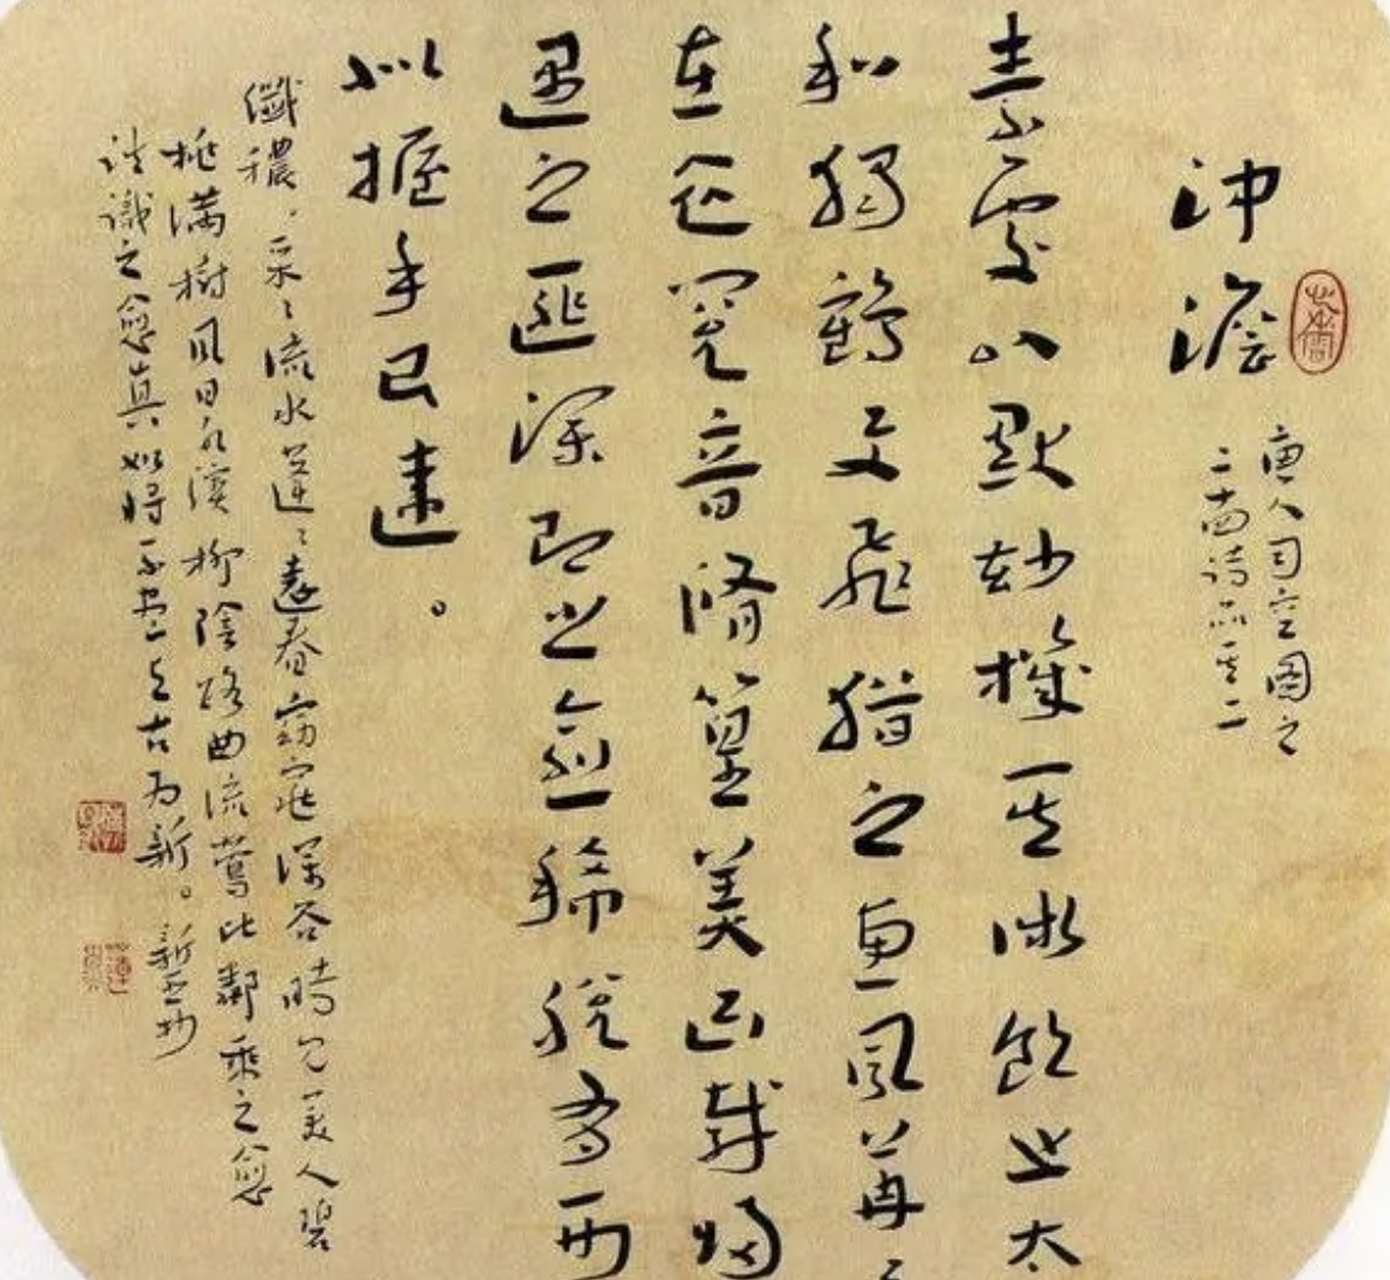 沖澹
唐人司空圖之
二十四詩品其二
素處以默妙機其微飲之太
和獨鶴與飛猶之惠風荏
在衣閱音脩篁美曰載歸
遇之匪深即之愈稀脫有形
似握手已違。
纖穠，采々流水蓬々遠春窈窕深谷時見美人碧
桃滿樹風日水濱柳陰路曲流鶯比鄰乘之愈
往識之愈真如將不盡與古為新。